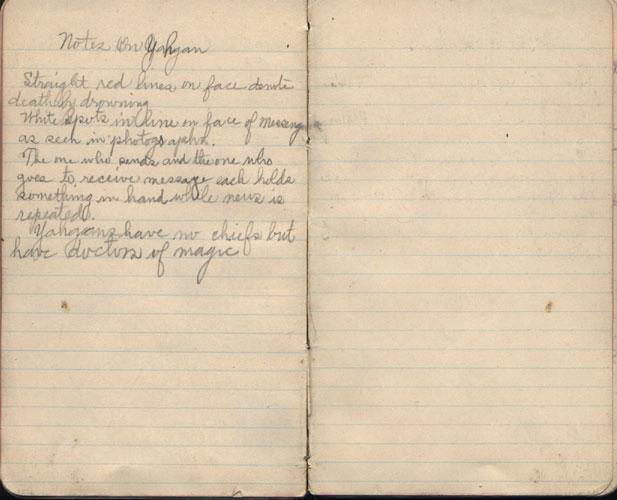 Notes On Yahgan
Straight red lines on face denote
death by drowning
White spots in line on face of messeng
as seen in photographs.
The one who sends and the one who
goes to receive message each holds
something in hand while news is
repeated.
Yahgans have no chiefs but
have doctors of magic